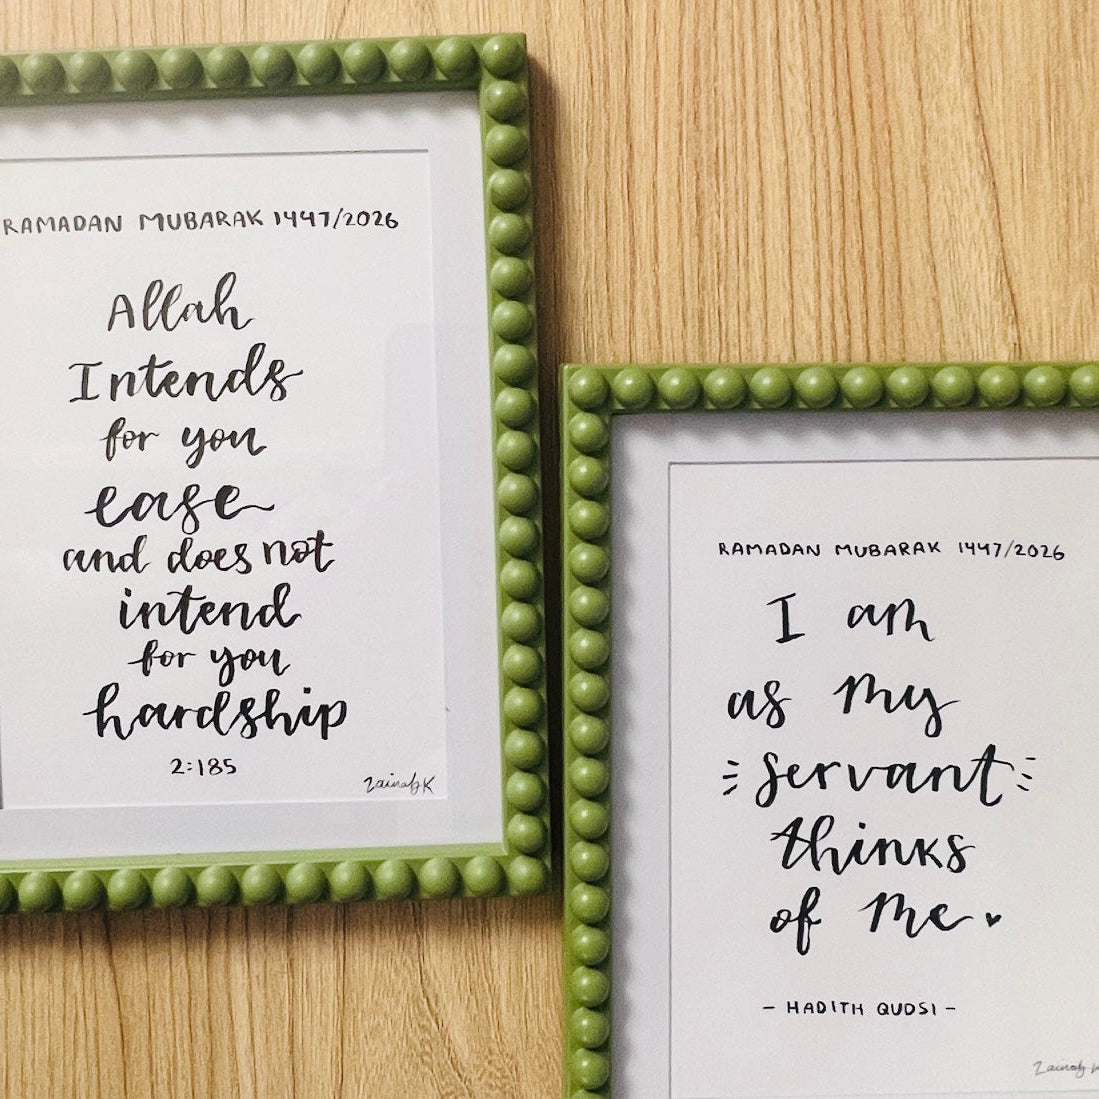 RAMADAN MUBARAK 1447/2026
Allah
Intends
for you
ease
and does not
intend
for you
hardship
2:185
Zainab K
RAMADAN MUBARAK 1447/2026
I am
as my
servant
thinks
of me
- HADITH QUDSI -
Zainab K